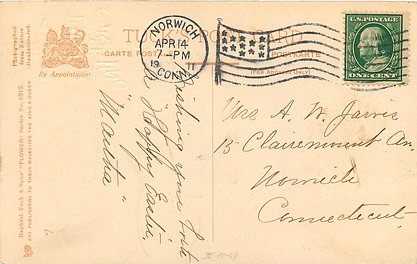 TUCK'S POST CARD
CARTE POSTALE
(For Address Only)
Photographed
from Nature
Copyrighted.
By Appointment
Raphael Tuck & Sons' "FLOWER" Series No. 6912.
ART PUBLISHERS TO THEIR MAJESTIES THE KING & QUEEN
NORWICH
APR 14
7-PM
19 11
CONN.
U.S. POSTAGE
ONE CENT
Wishing you both
a "Happy Easter"
Mrs A. W. Jarvis
15 Clairemount Av
Norwich
Connecticut